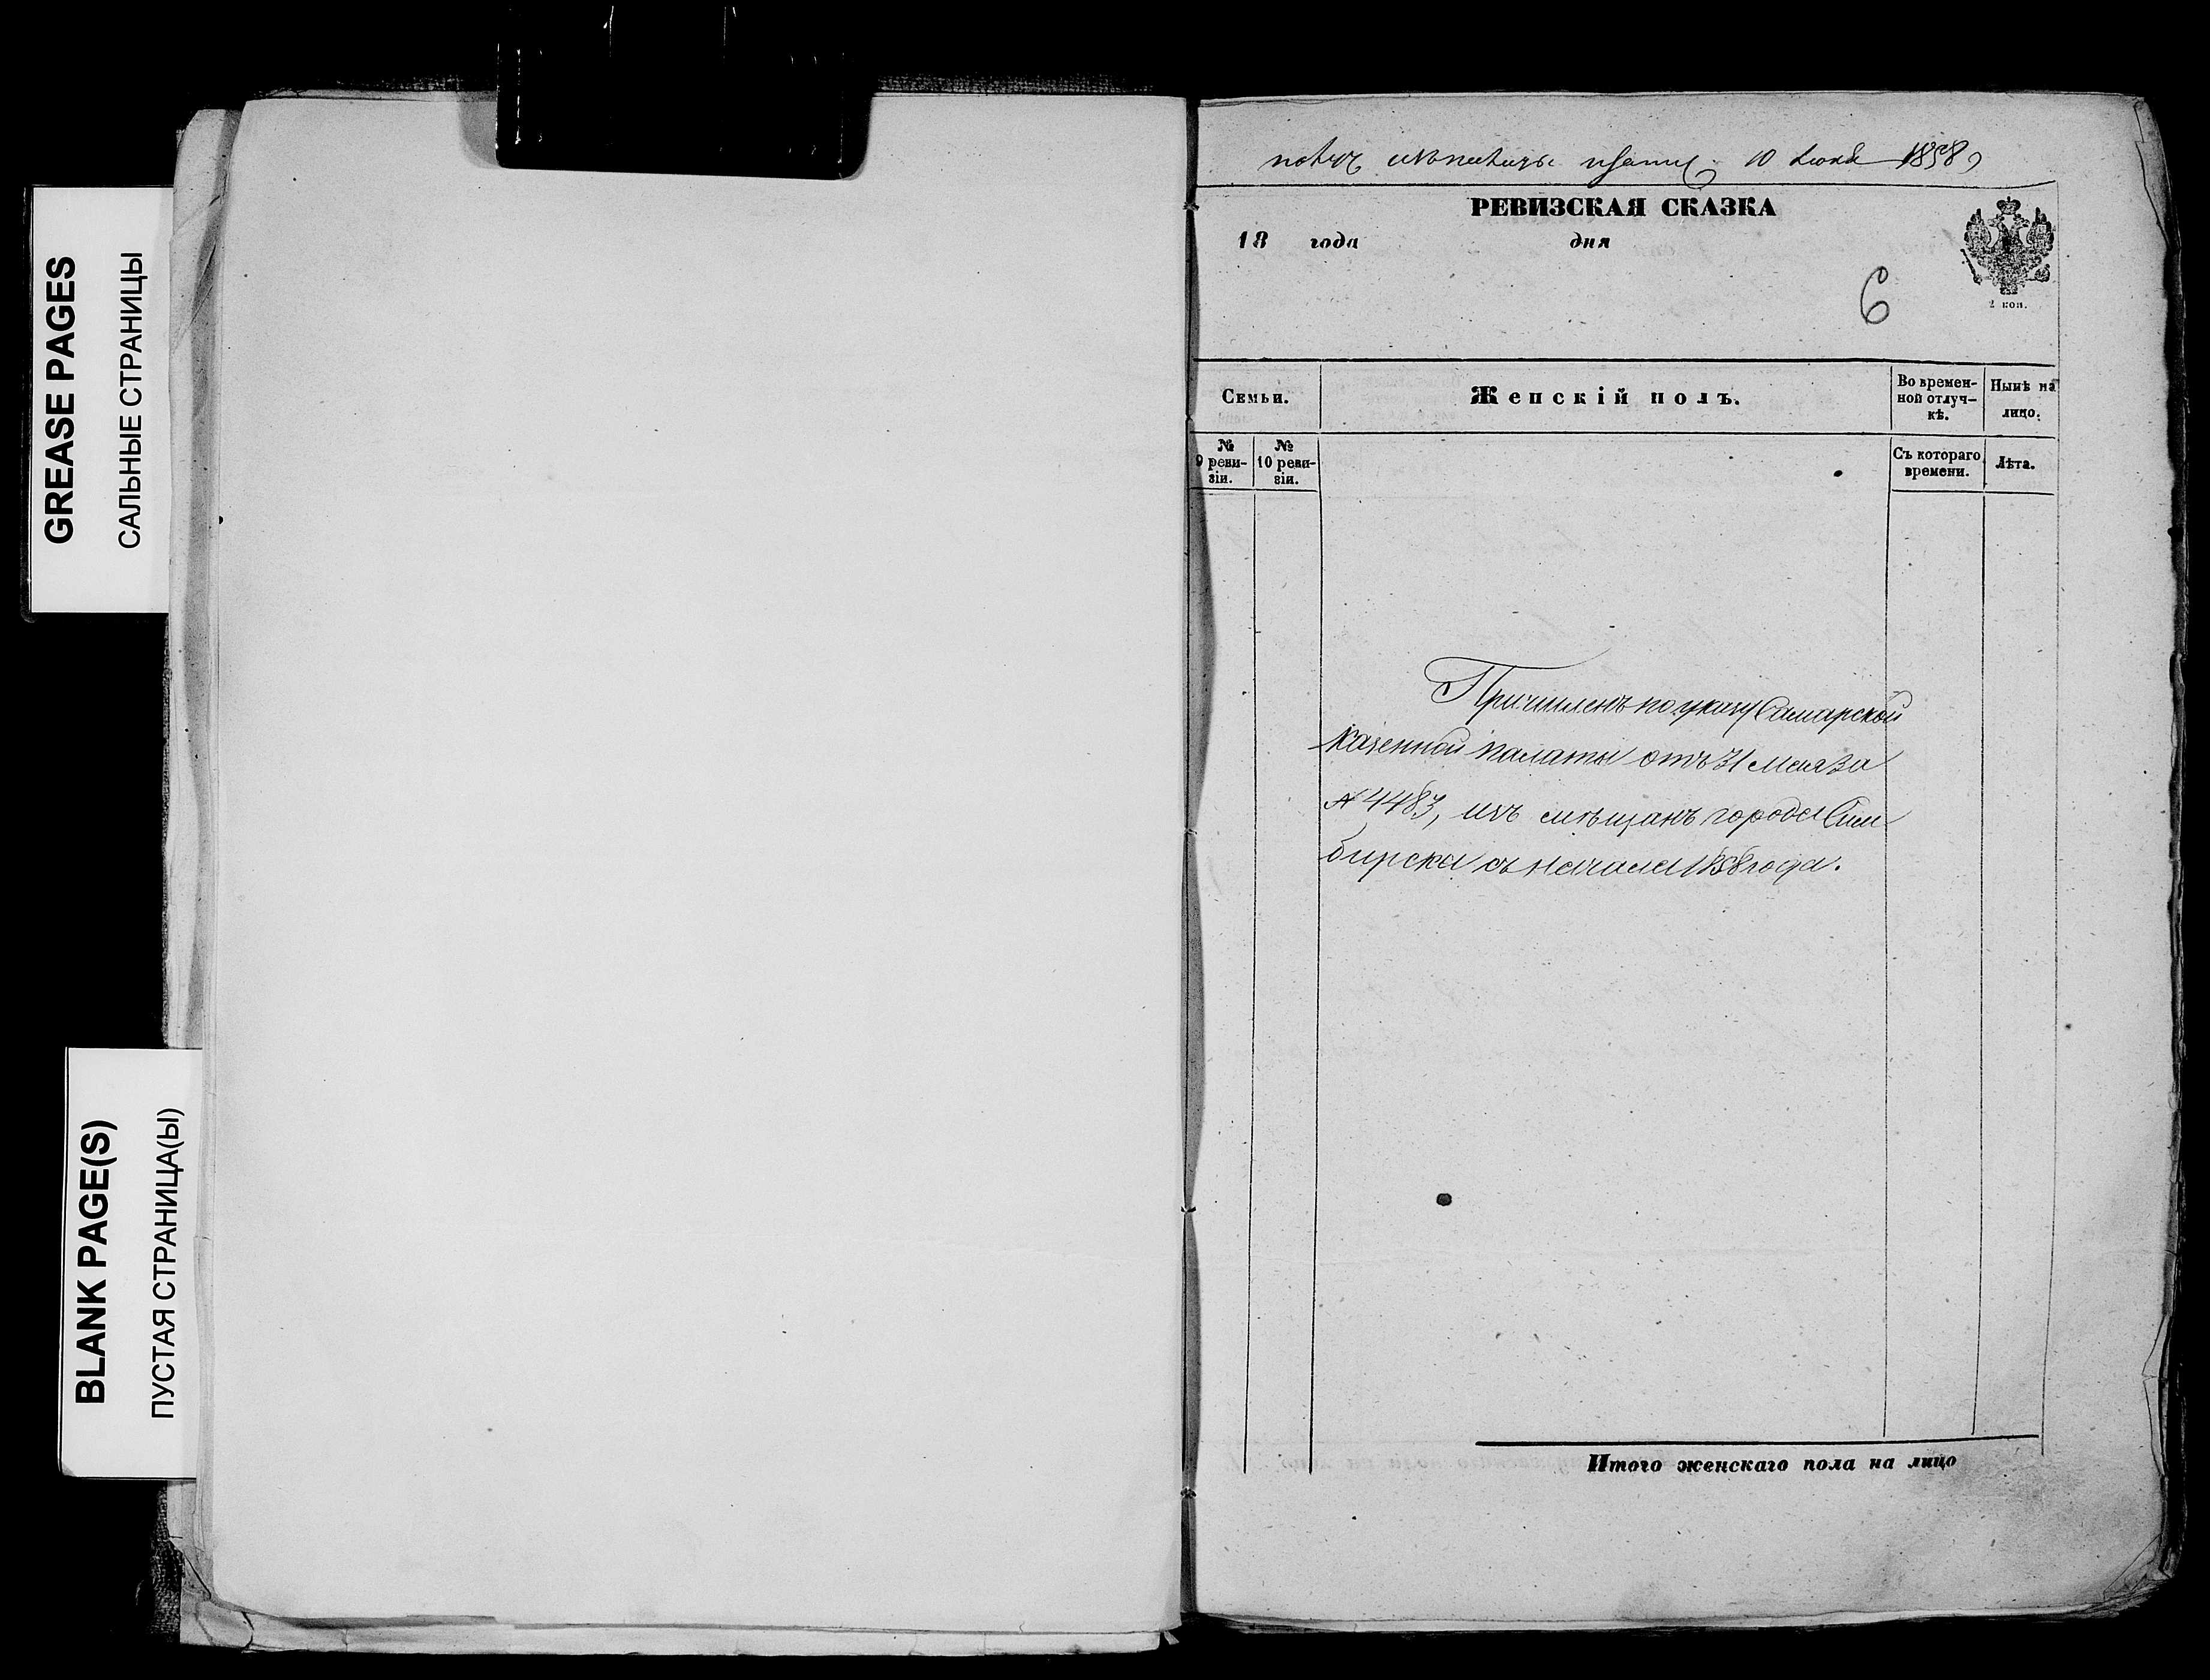 GREASE PAGES
САЛЬНЫЕ СТРАНИЦЫ
BLANK PAGE(S)
ПУСТАЯ СТРАНИЦА(Ы)
10 Июня 1858
РЕВИЗСКАЯ СКАЗКА
18 года дня
2 коп.
6
Семьи.
Женскій полъ.
Во времен-
ной отлуч-
кѣ.
Нынѣ на
лицо.
№
9 реви-
зіи.
№
10 реви-
зіи.
Съ котораго
времени.
Лѣта.
Причисленъ по указу Самарской
Казенной палаты отъ 31 Мая за
№ 4483, изъ мѣщанъ города Сим-
бирска съ начала 1858 года.
Итого женскаго пола на лицо